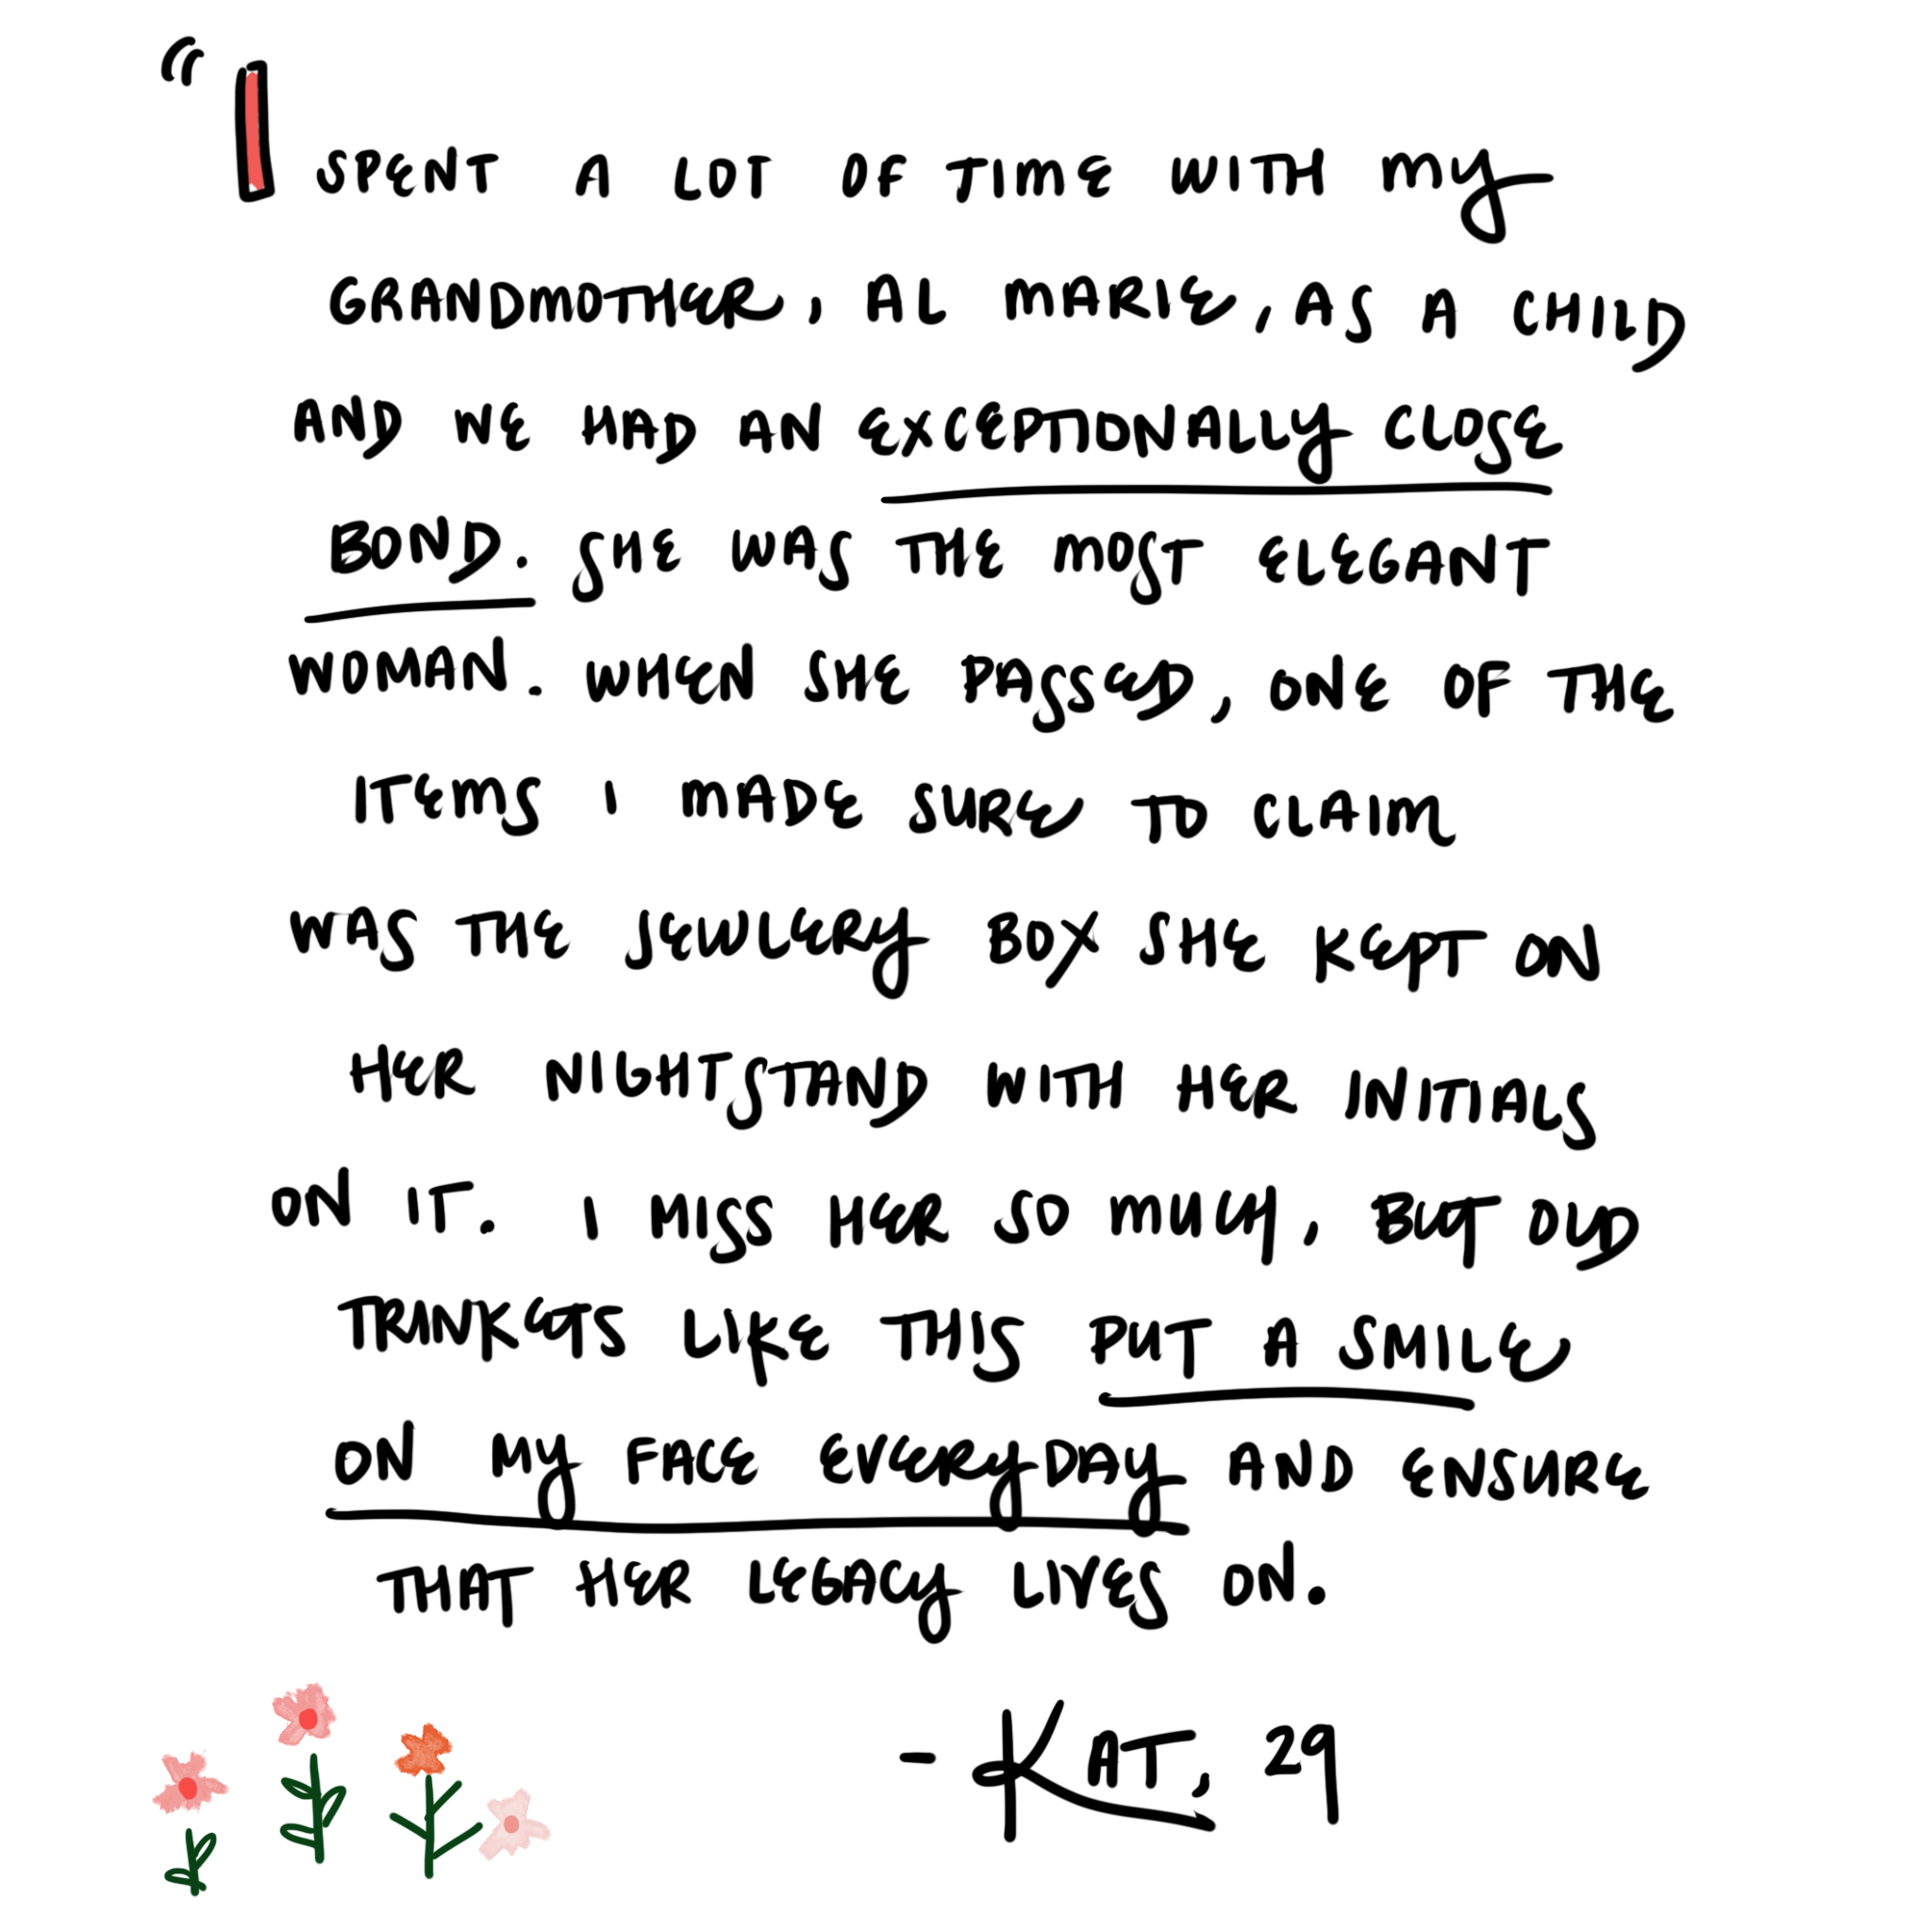 “I SPENT A LOT OF TIME WITH MY
GRANDMOTHER, AL MARIE, AS A CHILD
AND WE HAD AN EXCEPTIONALLY CLOSE
BOND. SHE WAS THE MOST ELEGANT
WOMAN. WHEN SHE PASSED, ONE OF THE
ITEMS I MADE SURE TO CLAIM
WAS THE JEWLERY BOX SHE KEPT ON
HER NIGHTSTAND WITH HER INITIALS
ON IT. I MISS HER SO MUCH, BUT OLD
TRINKETS LIKE THIS PUT A SMILE
ON MY FACE EVERYDAY AND ENSURE
THAT HER LEGACY LIVES ON.
- KAT, 29